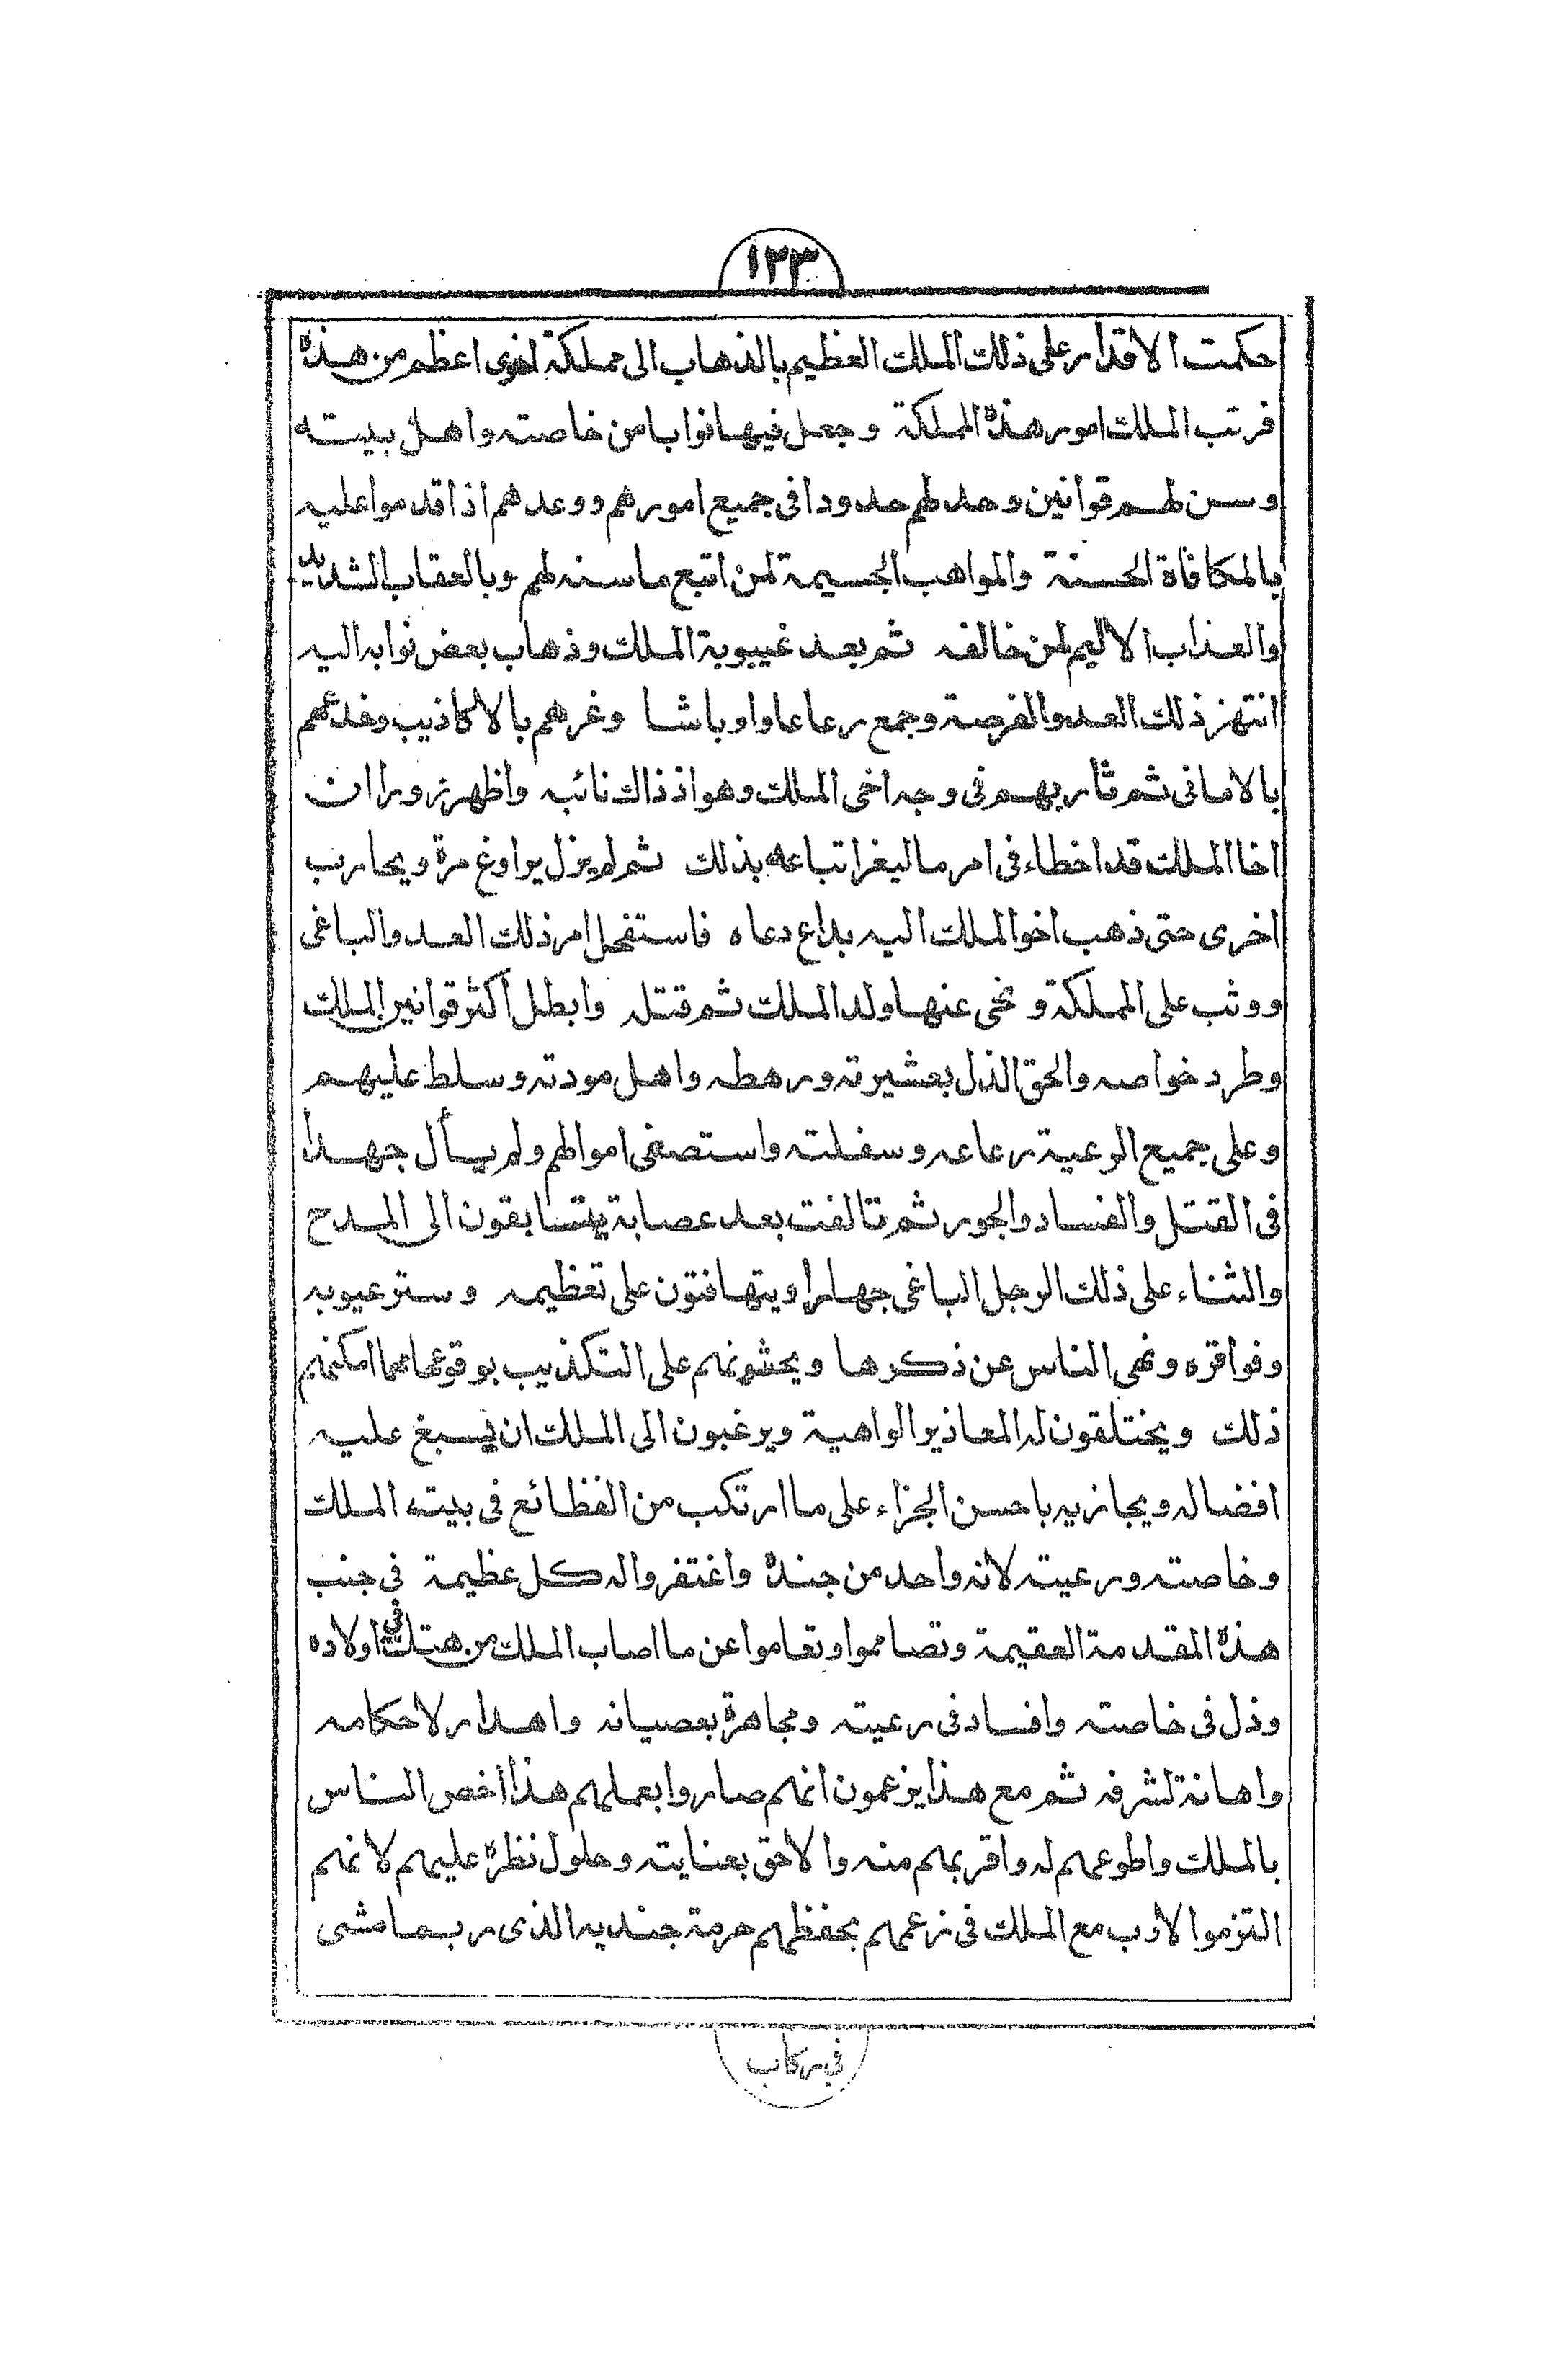 ١٢٣
حكمت الاقدار على ذلك الملك العظيم بالذهاب الى مملكة اخرى اعظم من هذه
فرتب الملك امور هذه المملكة وجعل فيها نوابا من خاصته واهل بيته
وسن لهم قوانين وحد لهم حدودا فى جميع امورهم ووعدهم اذا قدموا عليه
بالمكافاة الحسنة والمواهب الجسيمة لمن اتبع ما سنه لهم وبالعقاب الشديد
والعذاب الاليم لمن خالفه ثم بعد غيبوبة الملك وذهاب بعض نوابه اليه
انتهز ذلك العدو الفرصة وجمع رعاعا واوباشا وغرهم بالاكاذيب وخدعهم
بالامانى ثم ثار بهم فى وجه اخى الملك وهو اذ ذاك نائبه واظهر زورا ان
اخا الملك قد اخطاء فى امر ما ليغر اتباعه بذلك ثم لم يزل يراوغ مرة ويحارب
اخرى حتى ذهب اخو الملك اليه بداع دعاه فاستفحل امر ذلك العدو الباغى
ووثب على المملكة ونحى عنها ولد الملك ثم قتله وابطل اكثر قوانين الملك
وطرد خواصه والحق الذل بعشيرته ورهطه واهل مودته وسلط عليهم
وعلى جميع الرعية رعاعه وسفلته واستصفى اموالهم ولم يأل جهدا
فى القتل والفساد والجور ثم تالفت بعد عصابة يتسابقون الى المدح
والثناء على ذلك الرجل الباغى جهارا ويتهافتون على تعظيمه وستر عيوبه
وفواقره ونهى الناس عن ذكرها ويحثونهم على التكذيب بوقوعها مهما امكنهم
ذلك ويختلقون له المعاذير الواهية ويرغبون الى الملك ان يسبغ عليه
افضاله ويجازيه باحسن الجزاء على ما ارتكب من الفظائع فى بيته الملك
وخاصته ورعيته لانه واحد من جنده واغتفروا له كل عظيمة فى جنب
هذه المقدمة العقيمة وتصامموا وتعاموا عن ما اصاب الملك من هتك فى اولاده
وذل فى خاصته وافساد فى رعيته ومجاهرة بعصيانه واهدار لاحكامه
واهانة لشرفه ثم مع هذا يزعمون انهم صاروا بعملهم هذا اخص الناس
بالملك واطوعهم له واقربهم منه والاحق بعنايته وحلول نظره عليهم لانهم
التزموا الادب مع الملك فى زعمهم بحفظهم حرمة جنديه الذى ربما مشى
فى ركاب